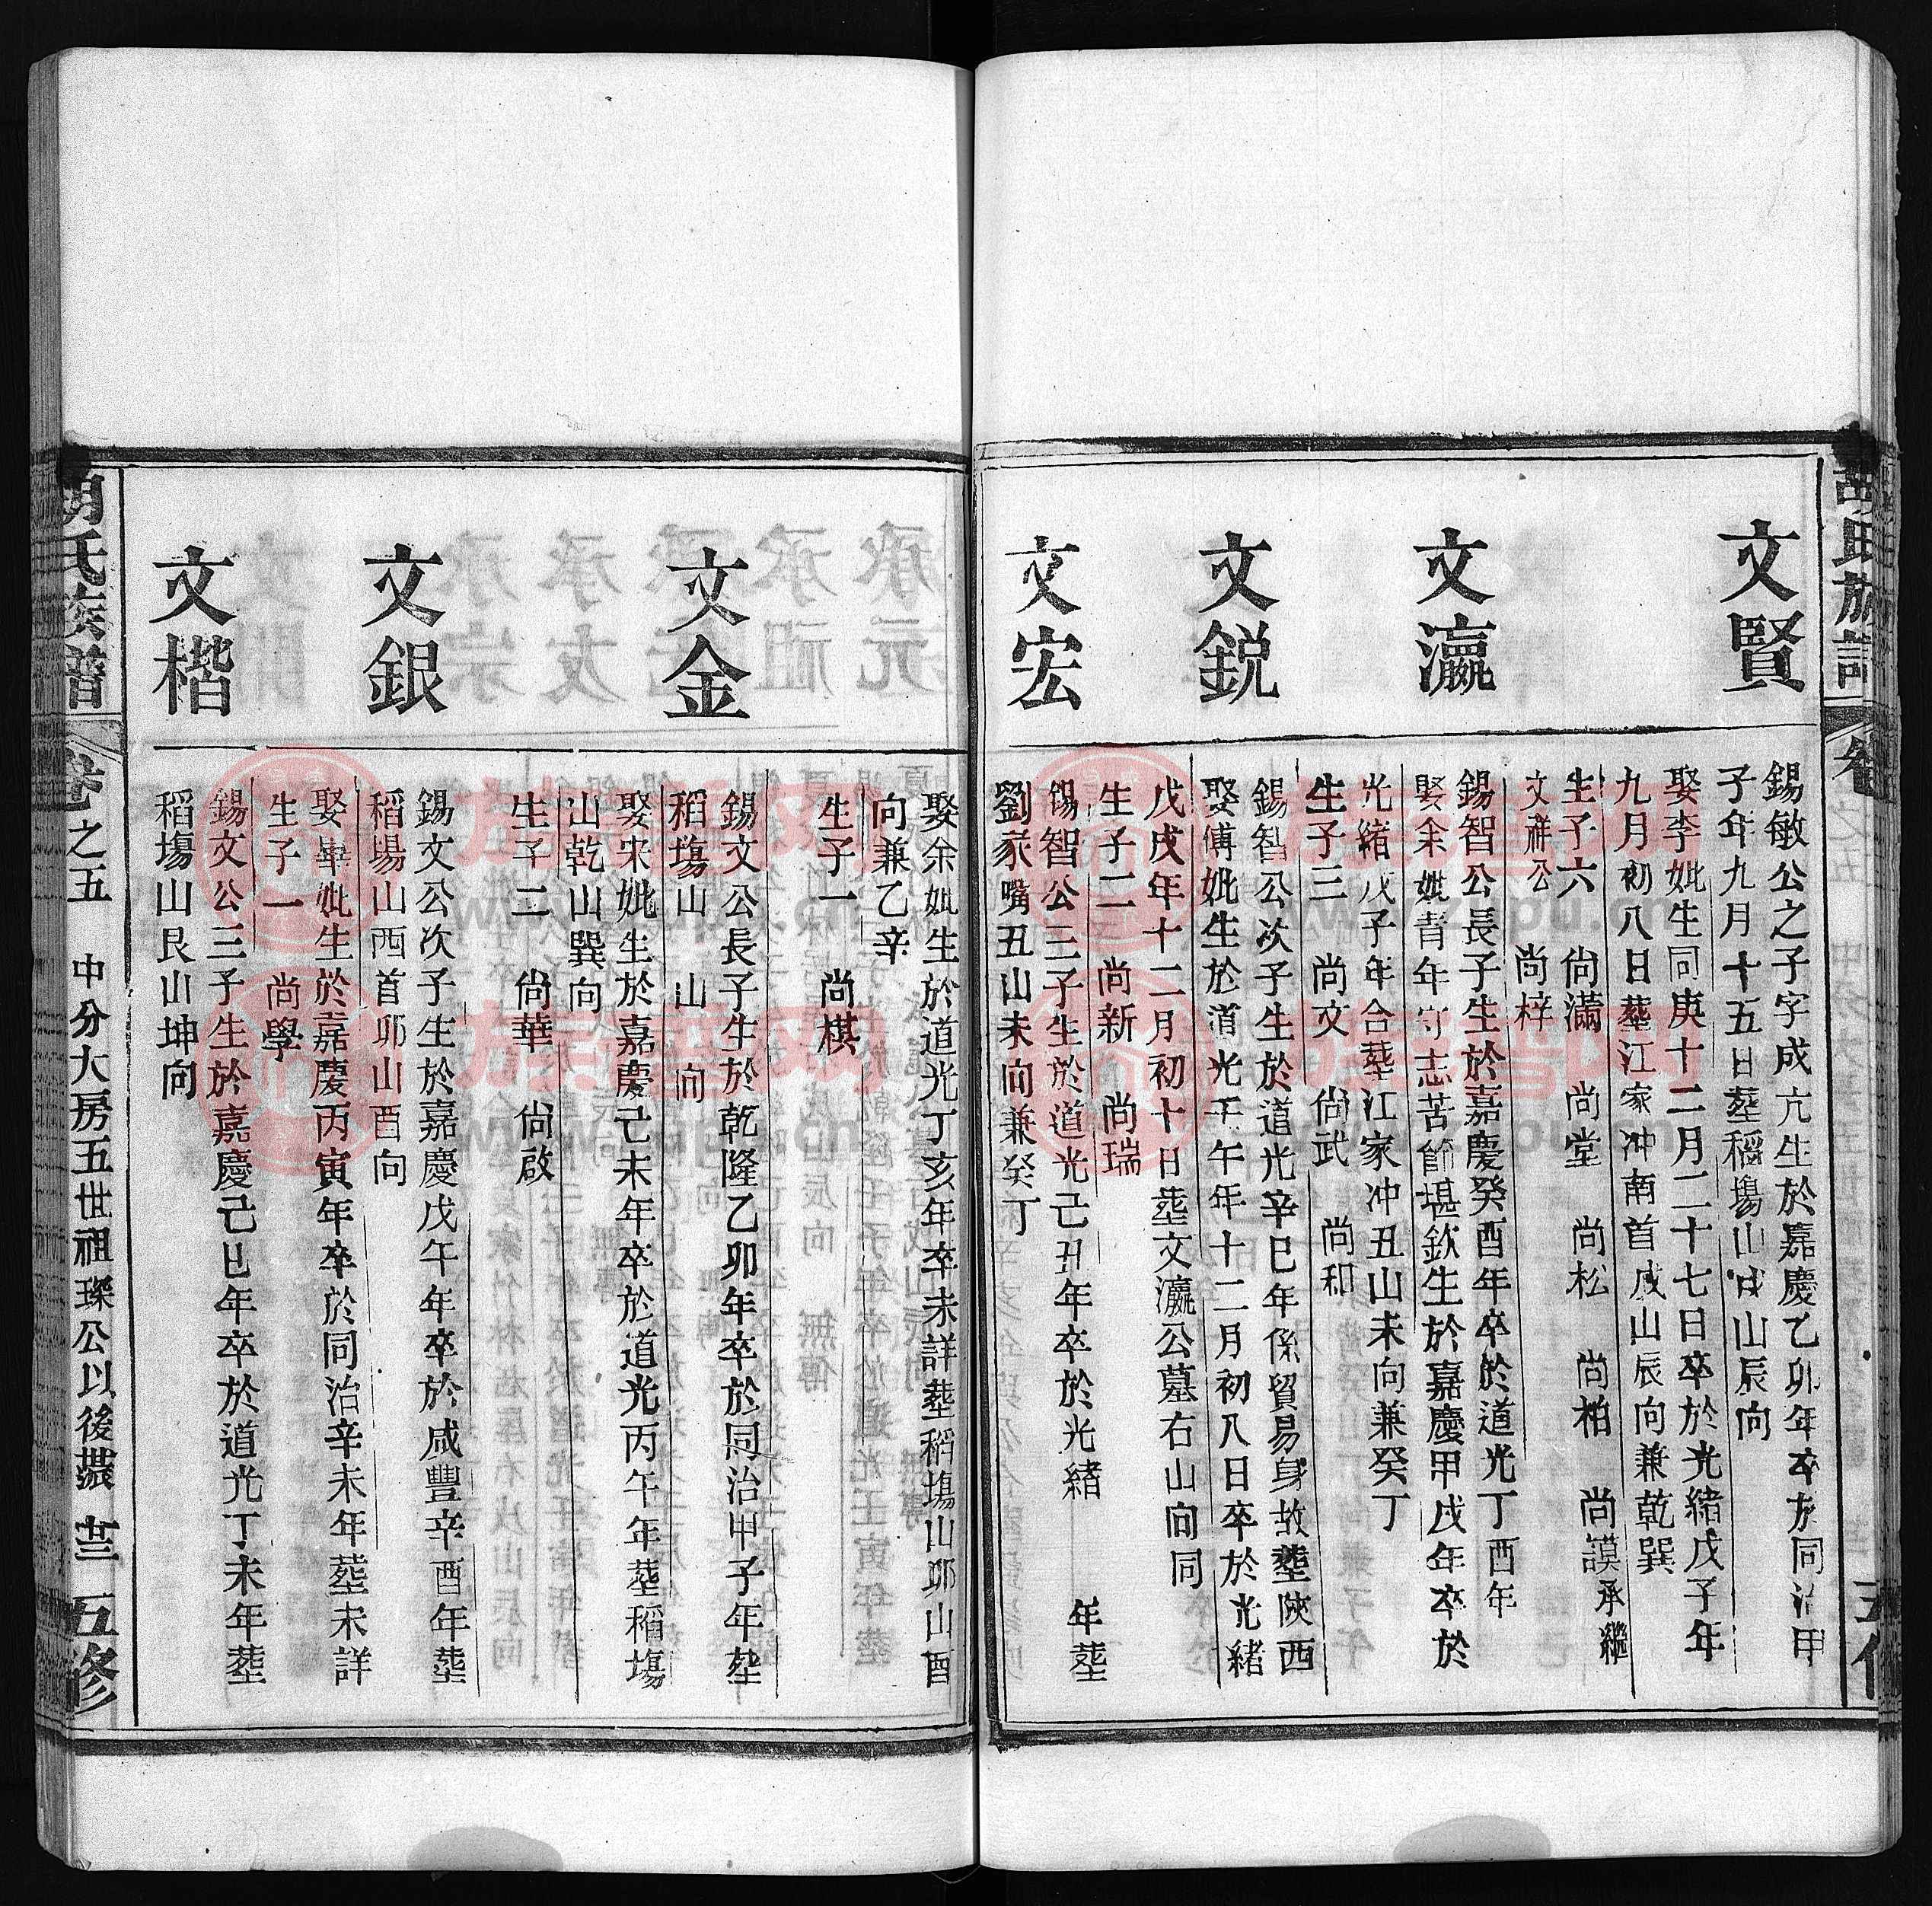 文賢
錫敏公之子字成亢生於嘉慶乙卯年卒於同治甲
子年九月十五日塟稻塲山戌山辰向
娶李妣生同庚十二月二十七日卒於光緒戊子年
九月初八日塟江家冲南首戌山辰向兼乾巽
生子六 尙滿 尙堂 尙松 尙柏 尙謨承繼
文祥公 尙梓
文瀛
錫智公長子生於嘉慶癸酉年卒於道光丁酉年
娶余妣青年守志苦節堪欽生於嘉慶甲戌年卒於
光緒戊子年合塟江家冲丑山未向兼癸丁
生子三 尙文 尙武 尙和
文銳
錫智公次子生於道光辛巳年係貿易身故塟陝西
娶傅妣生於道光壬午年十二月初八日卒於光緒
戊戌年十二月初十日塟文瀛公墓右山向同
生子二 尙新 尙瑞
文宏
錫智公三子生於道光己丑年卒於光緒 年塟
劉家嘴丑山未向兼癸丁
娶余妣生於道光丁亥年卒未詳塟稻塲山夘山酉
向兼乙辛
生子一 尙棋
文金
錫文公長子生於乾隆乙卯年卒於同治甲子年塟
稻塲山 山 向
娶宋妣生於嘉慶己未年卒於道光丙午年塟稻塲
山乾山巽向
生子二 尙華 尙啟
文銀
錫文公次子生於嘉慶戊午年卒於咸豐辛酉年塟
稻塲山西首夘山酉向
娶畢妣生於嘉慶丙寅年卒於同治辛未年塟未詳
生子一 尙學
文楷
錫文公三子生於嘉慶己巳年卒於道光丁未年塟
稻塲山艮山坤向
胡氏族譜 卷之五 中分大房五世祖璨公以後 五修